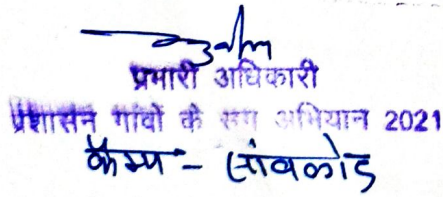 प्रभारी अधिकारी
प्रशासन गांवों के संग अभियान 2021
कैम्प - सांवकोड